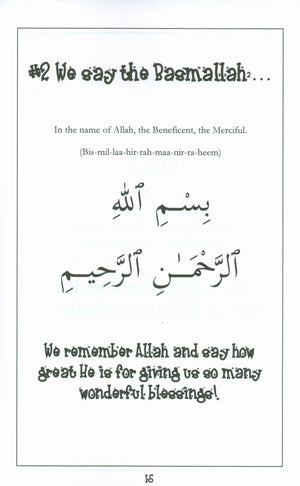 #2 We say the Basmallah²...
In the name of Allah, the Beneficent, the Merciful.
(Bis-mil-laa-hir-rah-maa-nir-ra-heem)
بِسْمِ ٱللَّهِ
ٱلرَّحْمَـٰنِ ٱلرَّحِيمِ
We remember Allah and say how
great He is for giving us so many
wonderful blessings!
15